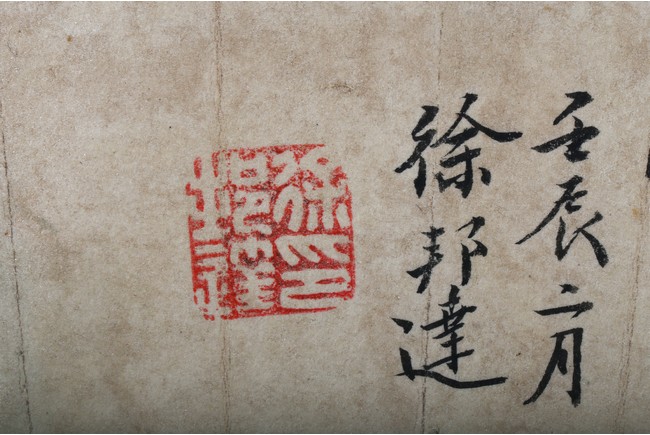 壬辰二月
徐邦達
徐邦達印